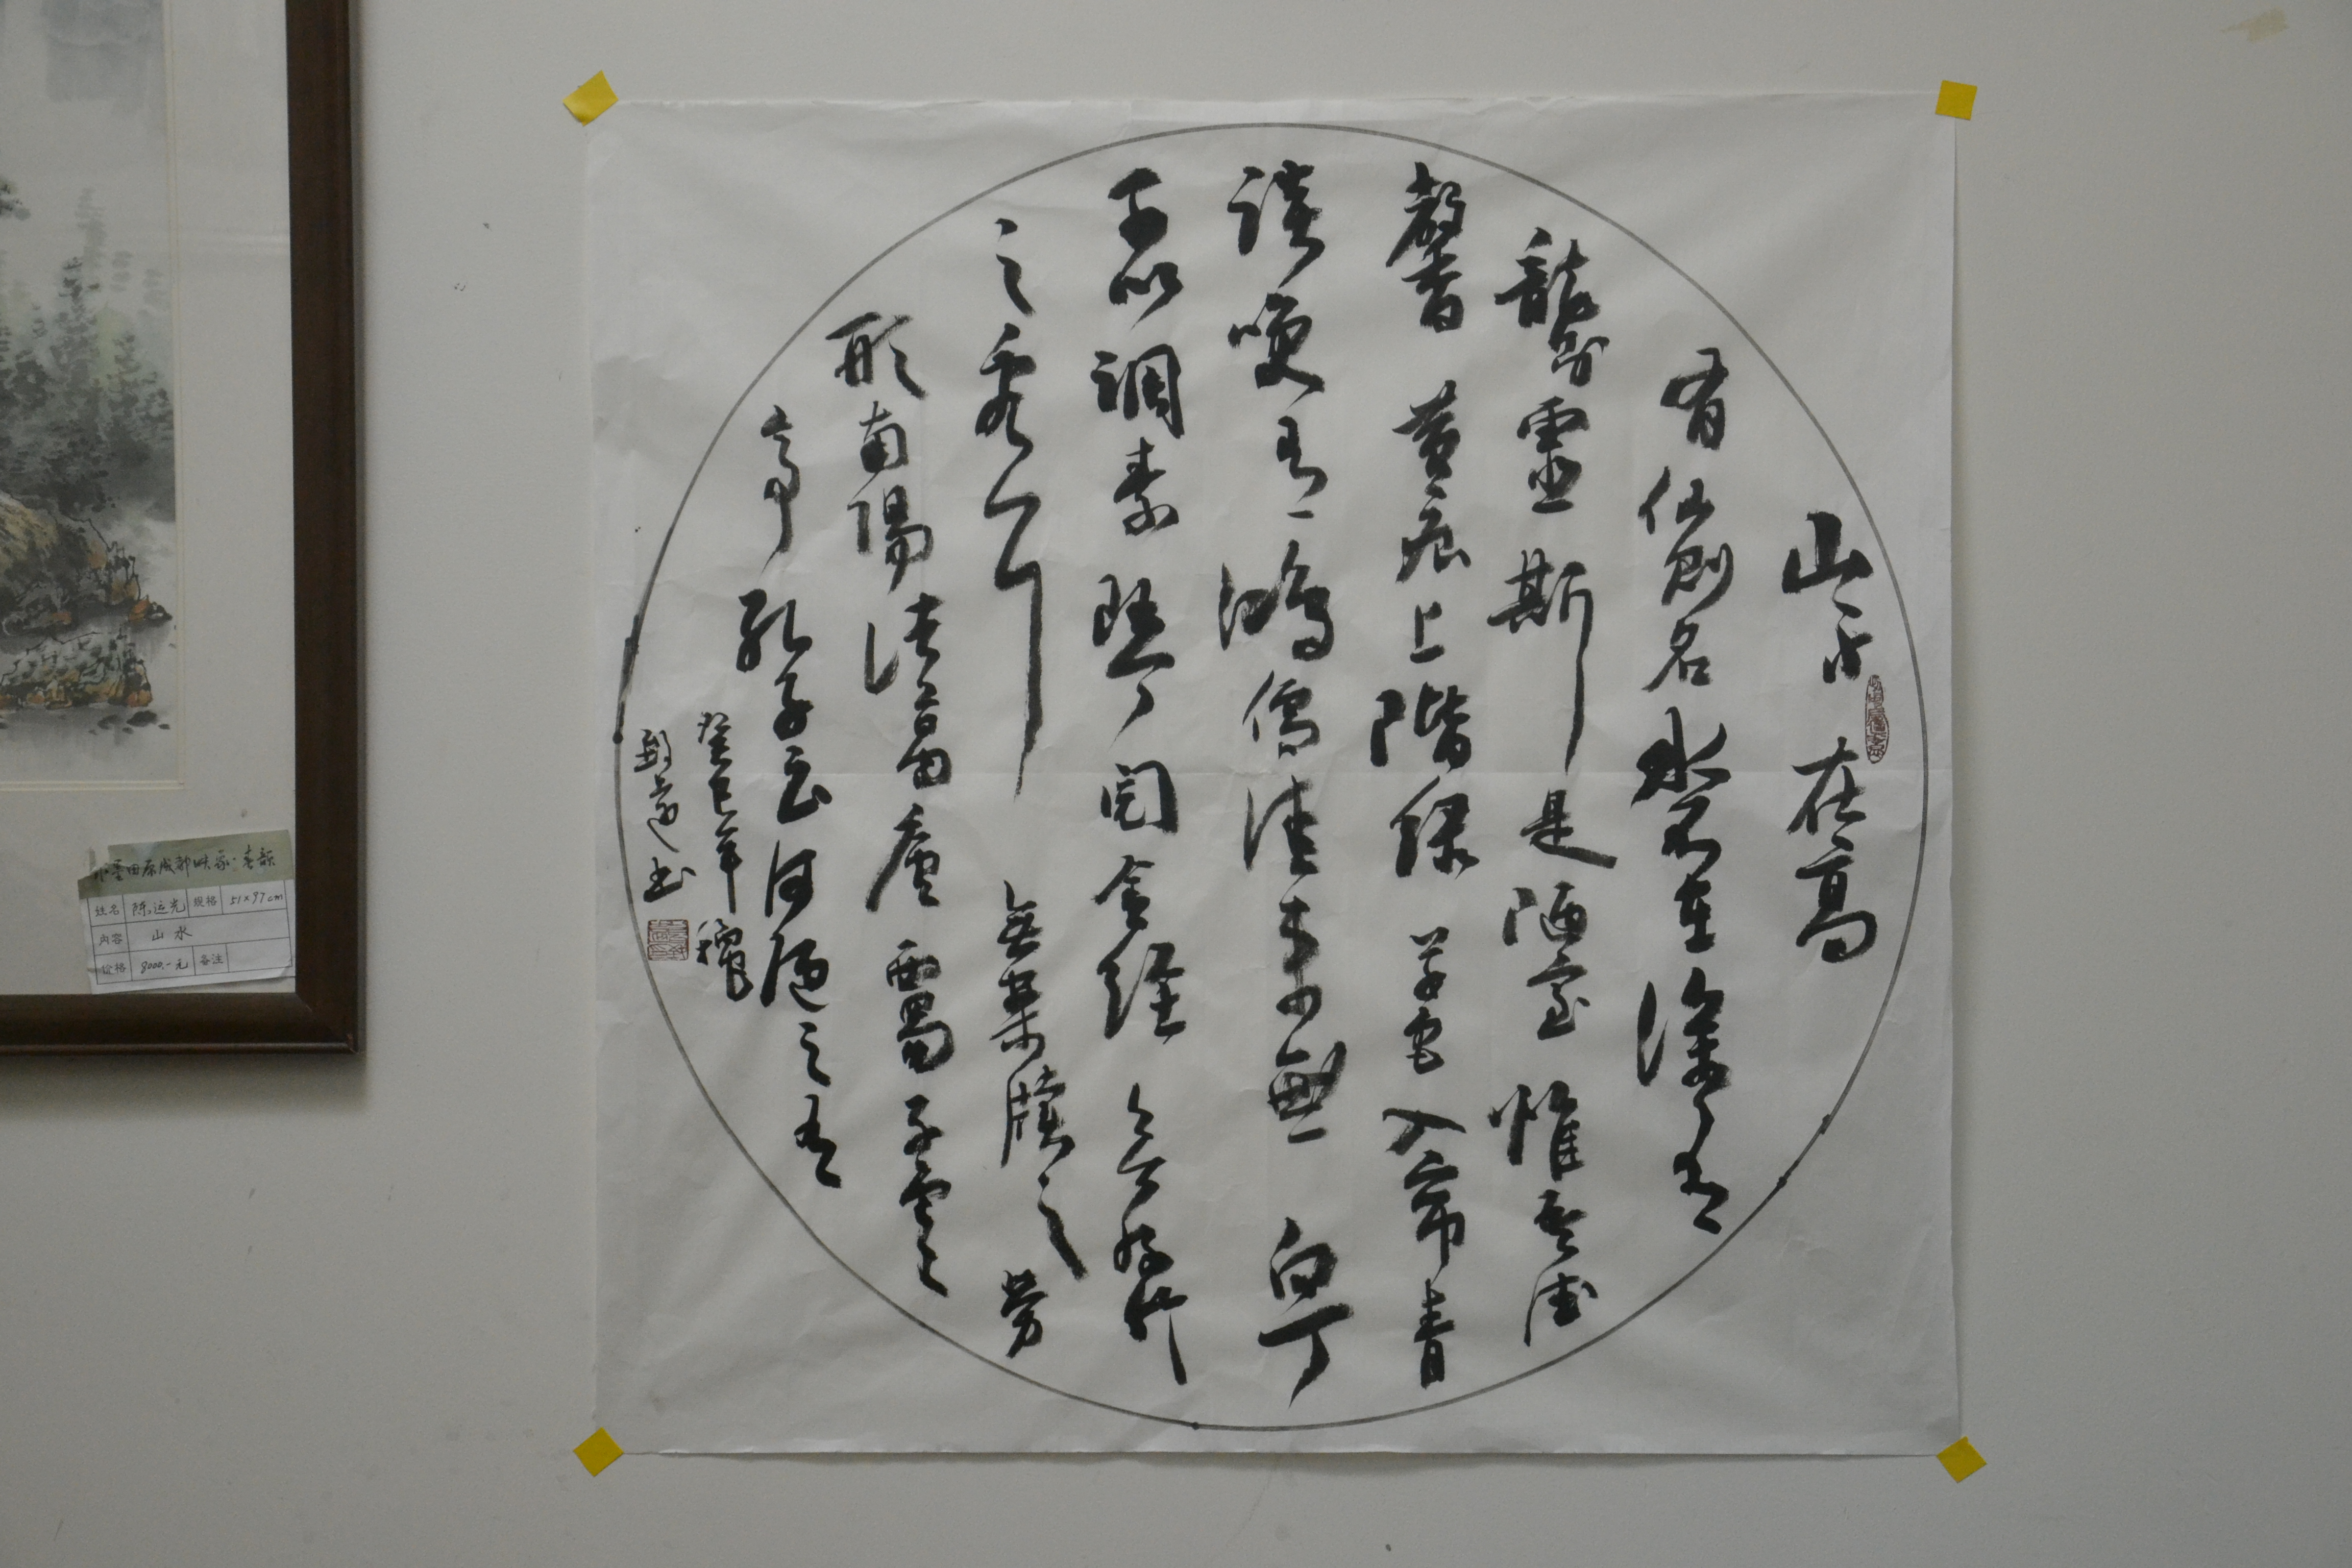 山不在高
有仙則名水不在深有
龍則靈斯是陋室惟吾德
馨苔痕上階綠草色入帘青
談咲有鴻儒往來無白丁
可以調素琴閱金經無絲竹
之亂耳無案牘之勞
形南陽諸葛廬西蜀子雲
亭孔子云何陋之有
癸巳年穐
書
水墨田原成都
姓名 陈运光 规格 51×97cm
内容 山水
价格 8000.-元 备注